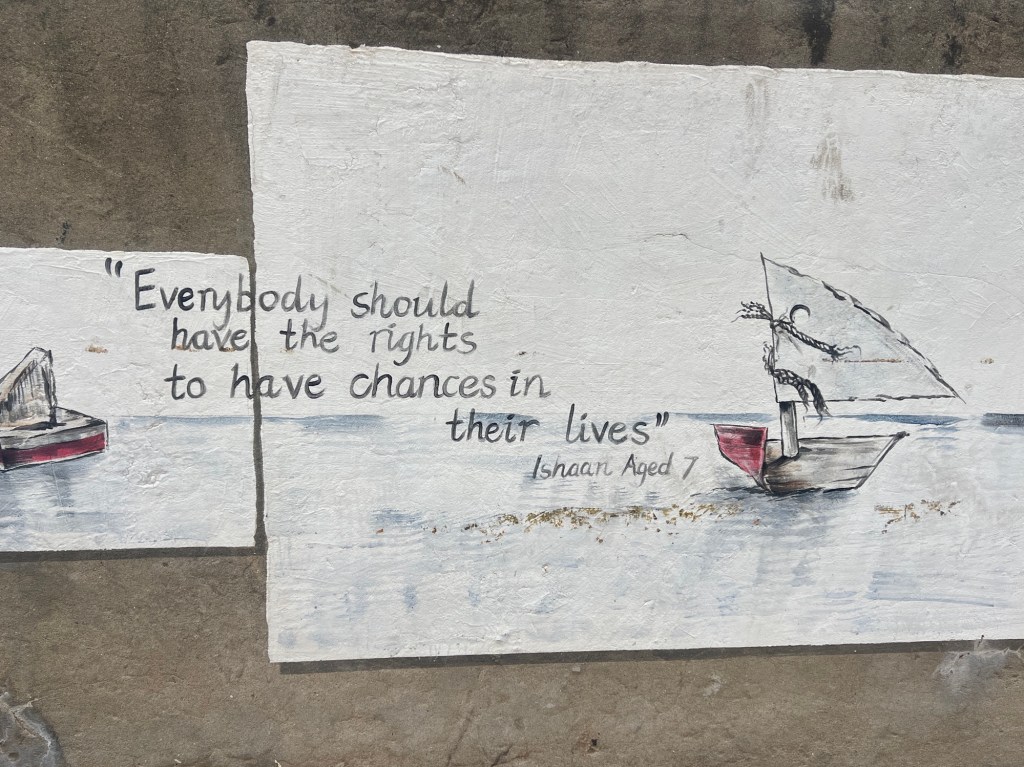 "Everybody should
have the rights
to have chances in
their lives"
Ishaan Aged 7